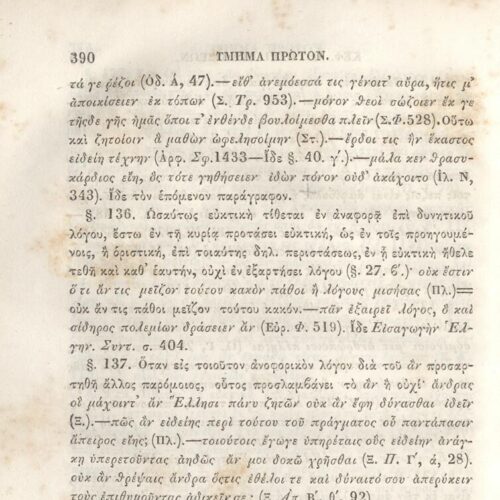 390 ΤΜΗΜΑ ΠΡΩΤΟΝ.
τά γε ῥέζοι (Ὀδ. Α, 47).—εἴθ' ἀνεμόεσσά τις γένοιτ' αὔρα, ἥτις μ'
ἀποικίσειεν ἐκ τόπων (Σ. Τρ. 953).—μόνον θεοὶ σώζοιεν ἐκ γε
τῆσδε γῆς ἡμᾶς ὅποι τ' ἐνθένδε βουλοίμεσθα πλεῖν (Σ.Φ.528). Οὕτω
καὶ ζητοίοιν ἃ μαθὼν ὠφελησοίμην (Στ.)—ἔρδοι τις ἣν ἕκαστος
εἰδείη τέχνην (Ἀρφ. Σφ.1433—Ἴδε §. 40. γ΄.)—μάλα κεν θρασυ-
κάρδιος εἴη, ὃς τότε γηθήσειεν ἰδὼν πόνον οὐδ' ἀκάχοιτο (Ἰλ. Ν,
343). Ἴδε τὸν ἑπόμενον παράγραφον.
§. 136. Ὡσαύτως εὐκτικὴ τίθεται ἐν ἀναφορᾷ ἐπὶ δυνητικοῦ
λόγου, ἔστω ἐν τῇ κυρίᾳ προτάσει εὐκτική, ὡς ἐν τοῖς προηγουμέ-
νοις, ἢ ὁριστική, ἐπὶ τοιαύτης δηλ. περιστάσεως, ἐν ᾗ εὐκτικὴ ἤθελε
τεθῆ καὶ καθ' ἑαυτήν, οὐχὶ ἐν ἐξαρτήσει λόγου (§. 27. β΄.)· οὐκ ἔστιν
ὅτι ἄν τις μεῖζον τούτου κακὸν πάθοι ἢ λόγους μισήσας (Πλ.)=
οὐκ ἄν τις πάθοι μεῖζον τούτου κακόν.—πᾶν ἐξαιρεῖ λόγος, ὃ καὶ
σίδηρος πολεμίων δράσειεν ἂν (Εὐρ. Φ. 519). Ἴδε Εἰσαγωγὴν Ἑλ-
λην. Συντ. σ. 404.
§. 137. Ὅταν εἰς τοιοῦτον ἀναφορικὸν λόγον διὰ τοῦ ἂν προσαρ-
τηθῇ ἄλλος παρόμοιος, οὗτος προσλαμβάνει τὸ ἂν ἢ οὐχί· ἄνδρας
οἳ μάχοιντ' ἂν Ἕλλησι πάνυ ζητῶν οὐκ ἂν ἔφη δύνασθαι ἰδεῖν
(Ξ.).—πῶς ἂν εἰδείης περὶ τούτου τοῦ πράγματος οὗ παντάπασιν
ἄπειρος εἴης; (Πλ.)—τοιούτοις ἔγωγε ὑπηρέταις οὓς εἰδείην ἀνάγ-
κῃ ὑπηρετοῦντας ἀηδῶς ἄν μοι δοκῶ χρῆσθαι (Ξ. Π. Γ΄, ά, 28).
οὐκ ἂν θρέψαις ἄνδρα ὅςτις ἐθέλοι τε καὶ δύναιτό σου ἀπερύκειν
τοὺς ἐπιθυμοῦντας ἀδικεῖν σε; (Ξ. Ἀπ. Β΄. θ΄. 92)